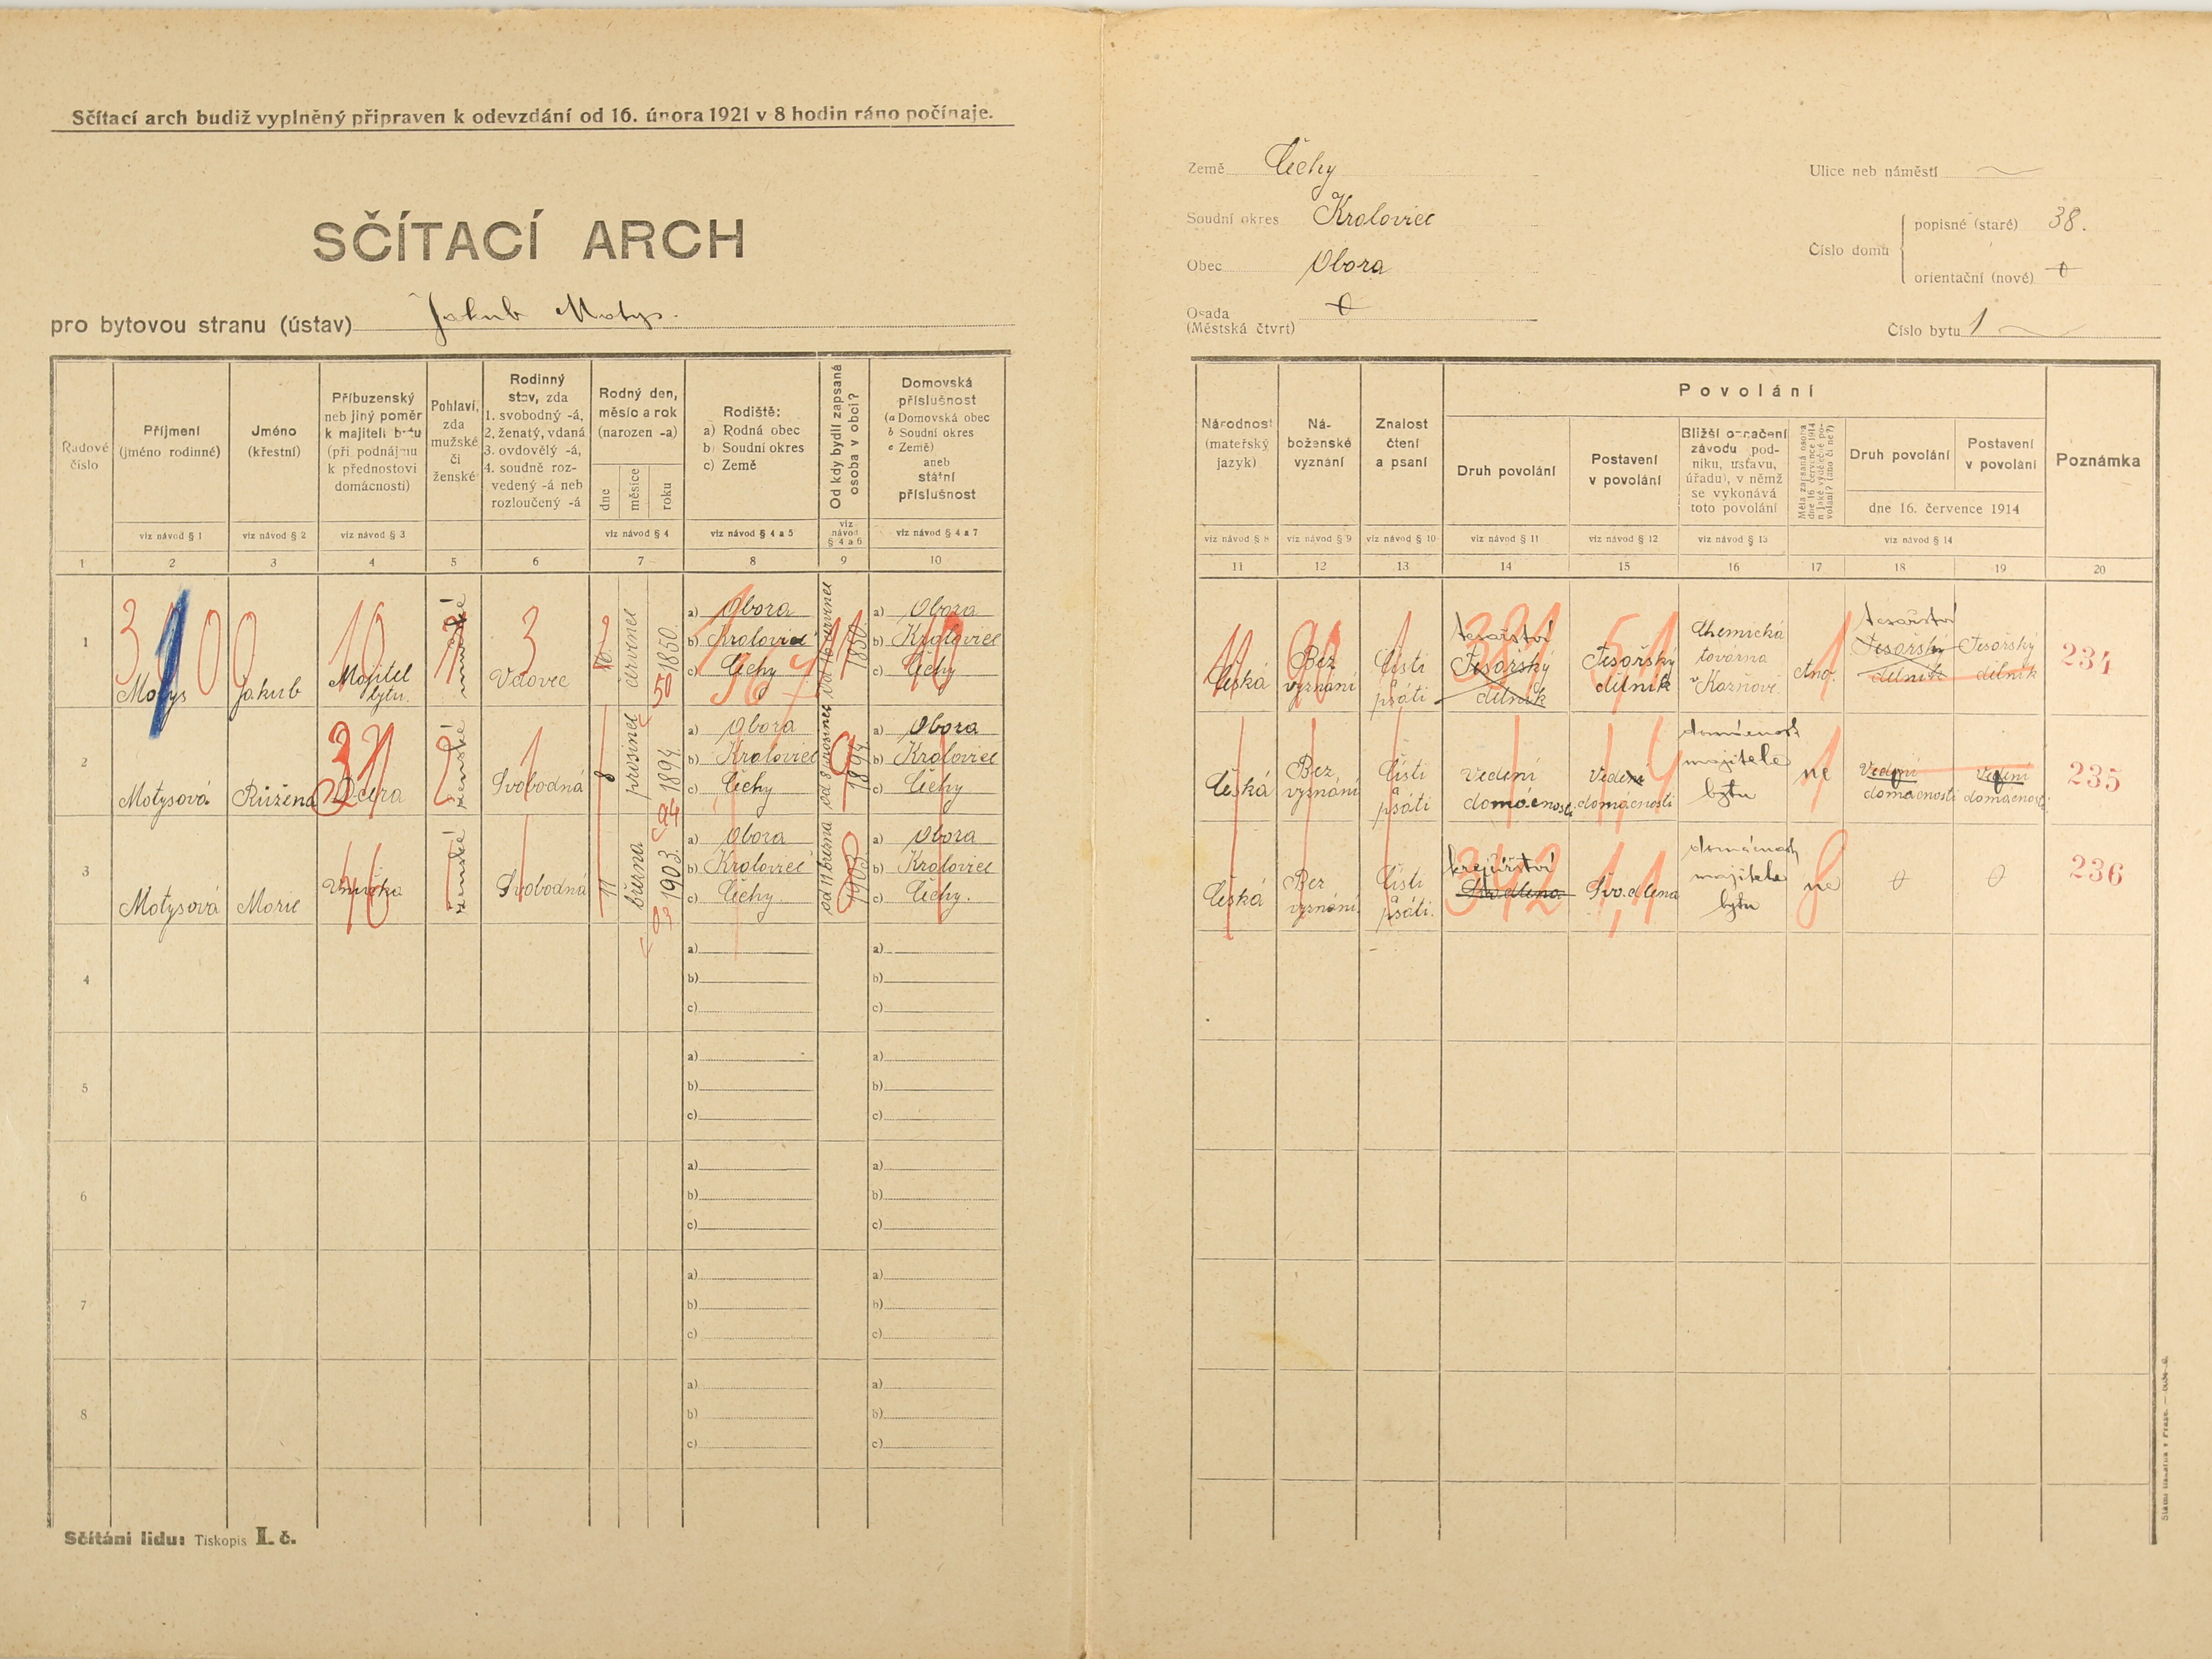 Sčítací arch budiž vyplněný připraven k odevzdání od 16. února 1921 v 8 hodin ráno počínaje.
SČÍTACÍ ARCH
pro bytovou stranu (ústav) Jakub Motys.
Země Čechy
Soudní okres Kralovice
Obec Obora
Osada
(Městská čtvrt)
Ulice neb náměstí
Číslo domu
popisné (staré) 38.
orientační (nové)
Číslo bytu 1
Řadové číslo
Příjmení (jméno rodinné)
Jméno (křestní)
Příbuzenský neb jiný poměr k majiteli bytu (při podnájmu k přednostovi domácnosti)
Pohlaví, zda mužské či ženské
Rodinný stav, zda
1. svobodný -á,
2. ženatý, vdaná
3. ovdovělý -á,
4. soudně rozvedený -á neb rozloučený -á
Rodný den, měsíc a rok (narozen -a)
dne měsíce roku
Rodiště:
a) Rodná obec
b) Soudní okres
c) Země
Od kdy bydlí zapsaná osoba v obci?
Domovská příslušnost
(a Domovská obec
b Soudní okres
c Země)
aneb
státní
příslušnost
viz návod § 1
viz návod § 2
viz návod § 3
viz návod § 4
viz návod § 4 a 5
viz návod § 4 a 6
viz návod § 4 a 7
1 2 3 4 5 6 7 8 9 10
Národnost (mateřský jazyk)
Náboženské vyznání
Znalost čtení a psaní
Povolání
Druh povolání
Postavení v povolání
Bližší označení závodu podniku, ústavu, úřadu), v němž se vykonává toto povolání
Druh povolání
Postavení v povolání
dne 16. července 1914
Poznámka
viz návod § 8
viz návod § 9
viz návod § 10
viz návod § 11
viz návod § 12
viz návod § 13
viz návod § 14
11 12 13 14 15 16 17 18 19 20
1
Motys
Jakub
Majitel bytu.
mužské
3
Vdovec
červenec
1850.
50
a) Obora
b) Kralovice
c) Čechy
1850.
a) Obora
b) Kralovice
c) Čechy
Česká
Bez vyznání
Čísti a psáti
tesařství
Tesařský dělník
Tesařský dělník
Chemická továrna v Kaznově.
Ano.
tesařství
Tesařský dělník
Tesařský dělník
234
2
Motysová
Růžena
Dcera
ženské
Svobodná
8
prosinec
1894.
94
a) Obora
b) Kralovice
c) Čechy
od 8 prosince 1894.
a) Obora
b) Kralovice
c) Čechy
Česká
Bez vyznání
Čísti a psáti
Vedení domácnosti
Vedení domácnosti
domácnost majitele bytu
ne
Vedení domácnosti
Vedení domácnosti
235
3
Motysová
Marie
Vnučka
ženské
Svobodná
11
března
1903.
03
a) Obora
b) Kralovice
c) Čechy
od 11 března 1903.
a) Obora
b) Kralovice
c) Čechy.
Česká
Bez vyznání
Čísti a psáti.
krejčířství
342
domácnost majitele bytu
ne
0
0
236
4
a)
b)
c)
a)
b)
c)
5
a)
b)
c)
a)
b)
c)
6
a)
b)
c)
a)
b)
c)
7
a)
b)
c)
a)
b)
c)
8
a)
b)
c)
a)
b)
c)
Sčítání lidu: Tiskopis I. č.